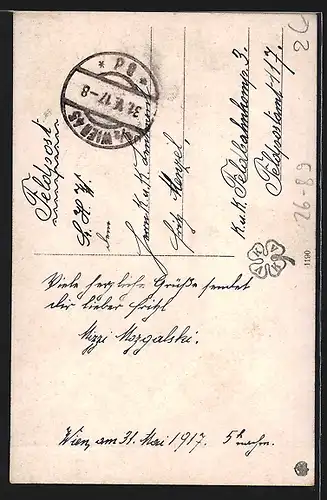 Feldpost
S. H. W.
dem
Herrn k. u. k.
Fritz Menzel,
k.u.k. Feldbahnkomp. 3.
Feldpostamt 117.
4/2 WIEN 45
31. V. 17 - 8
* 8d *
26-89
1190
Viele herzliche Grüße sendet
dir lieber Fritzl
Mizzi Mozgalski.
Wien, am 31. Mai 1917. 5h nachm.